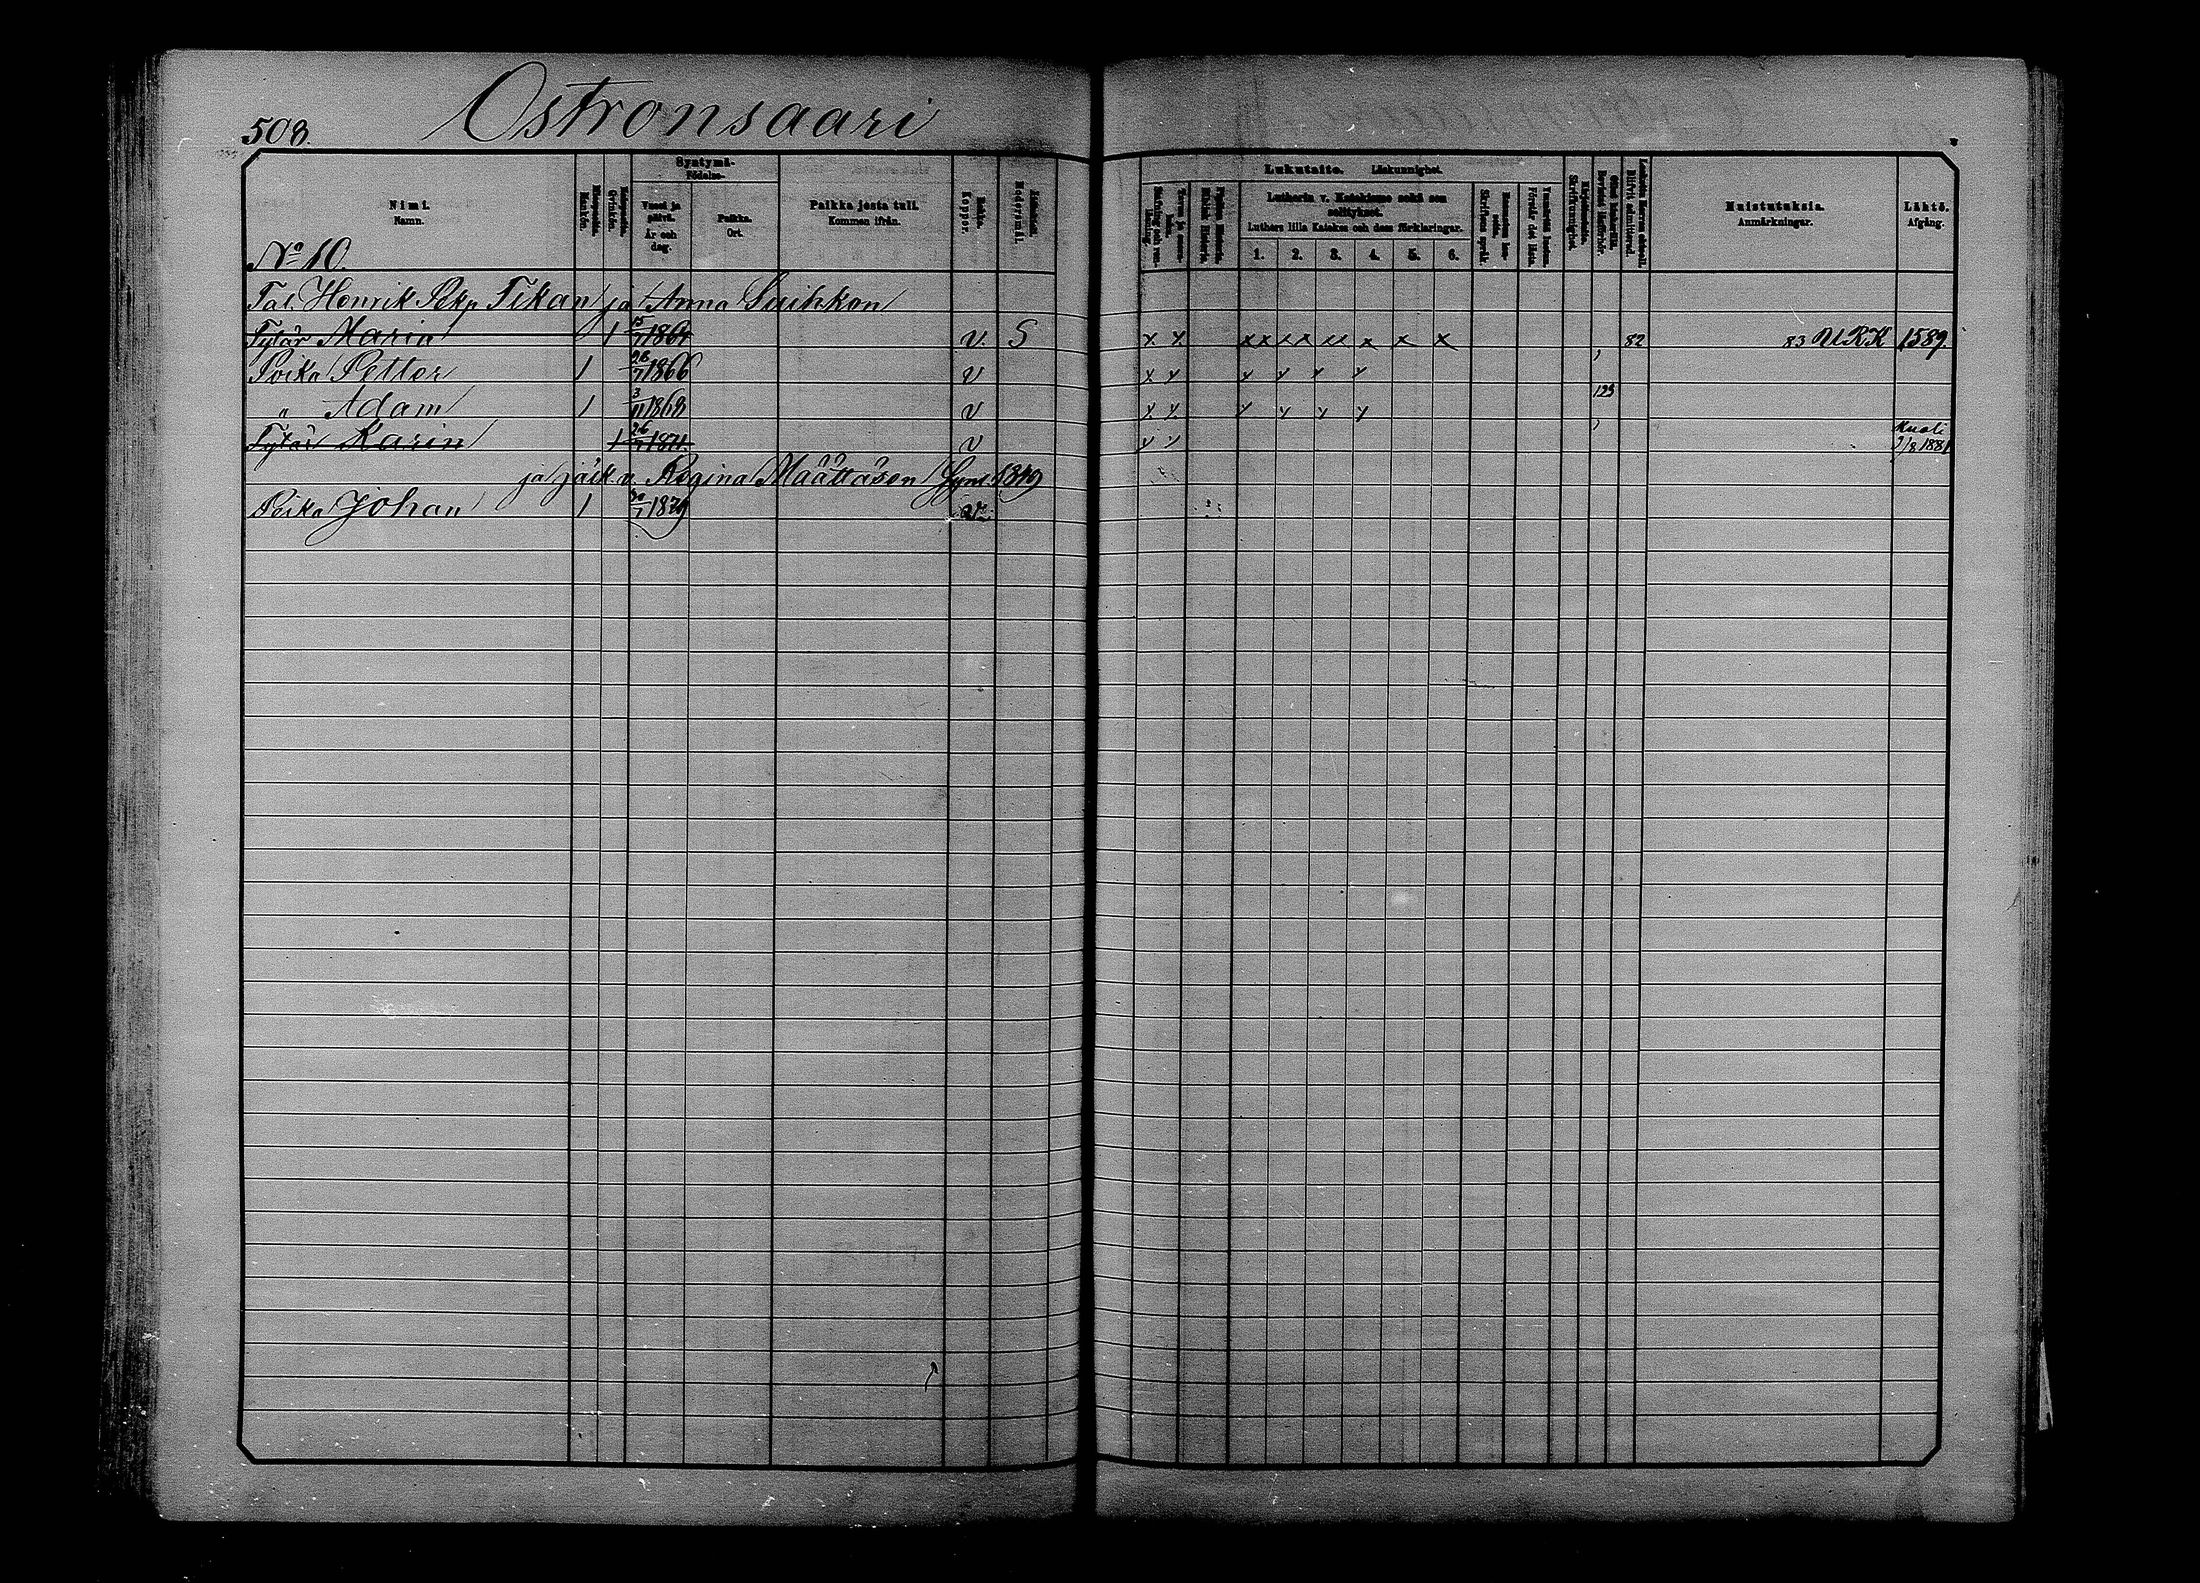 508.
Ostronsaari
Nimi.
Namn.
Miespuolia.
Mankön.
Syntymä-
Födelse-
Vuosi ja
päivä.
År och
dag.
Paikka.
Ort.
Paikka josta tuli.
Kommen ifrån.
Rokko.
Koppor.
Modersmål.
No 10.
Tal. Henrik Pekp. Tikan ja Anna Suihkon
Tytär Maria 1 15/1 1864 v. S
Poika Petter 1 28/7 1866 v
" Adam 1 3/11 1868 v
Tytär Karin 1 26/7 1871. v
ja jälk. v. Regina Määttäsen Synt. 1849
Poika Johan 1 1879 v.
Lukutaito. Läskunnighet.
Lutherin v. Katekismo sekä sen
selitykset.
Luthers lilla Katekes och dess förklaringar.
1. 2. 3. 4. 5. 6.
Förstår det lästa.
Skriftkunnighet.
Muistutuksia.
Anmärkningar.
Lähtö.
Afgång.
x x xx xx xx x x x 82 83 U.R.K 1589
x x x x x x
123
x x x x x x
x x Kuoli
1/8 1881